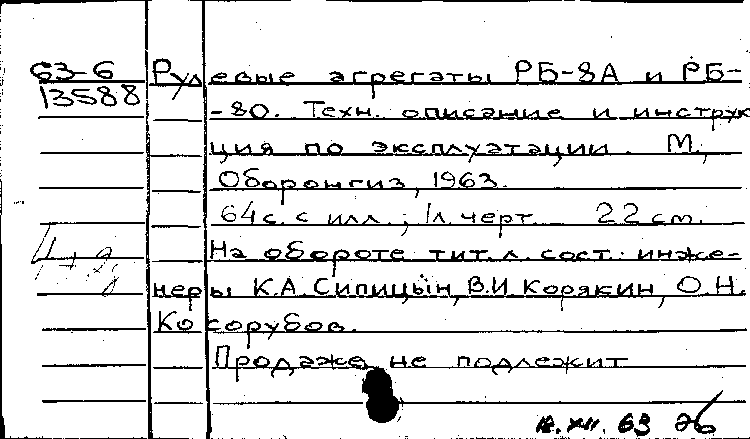 63-6 Рулевые агрегаты РБ-8А и РБ-
13588 -80. Техн. описание и инструк
ция по эксплуатации. М.,
Оборонгиз, 1963.
64 с. с илл.; 1 л. черт. 22 см.
На обороте тит. л. сост.: инже-
неры К.А. Сипицын, В.И. Корякин, О.Н.
Косорубов.
Продаже не подлежит
XII. 63